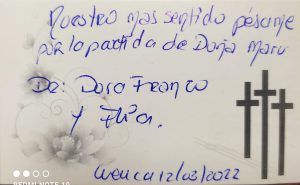 Nuestro mas sentido pésame
por la partida de Doña Maru
De: Dora Franco
y Flia.
Cuenca 12/03/2022
REDMI NOTE 10